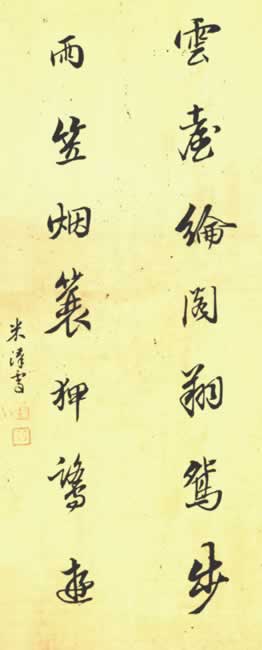 雲臺綸閣翔鴛步
雨笠烟蓑狎鷺遊
米漢雯